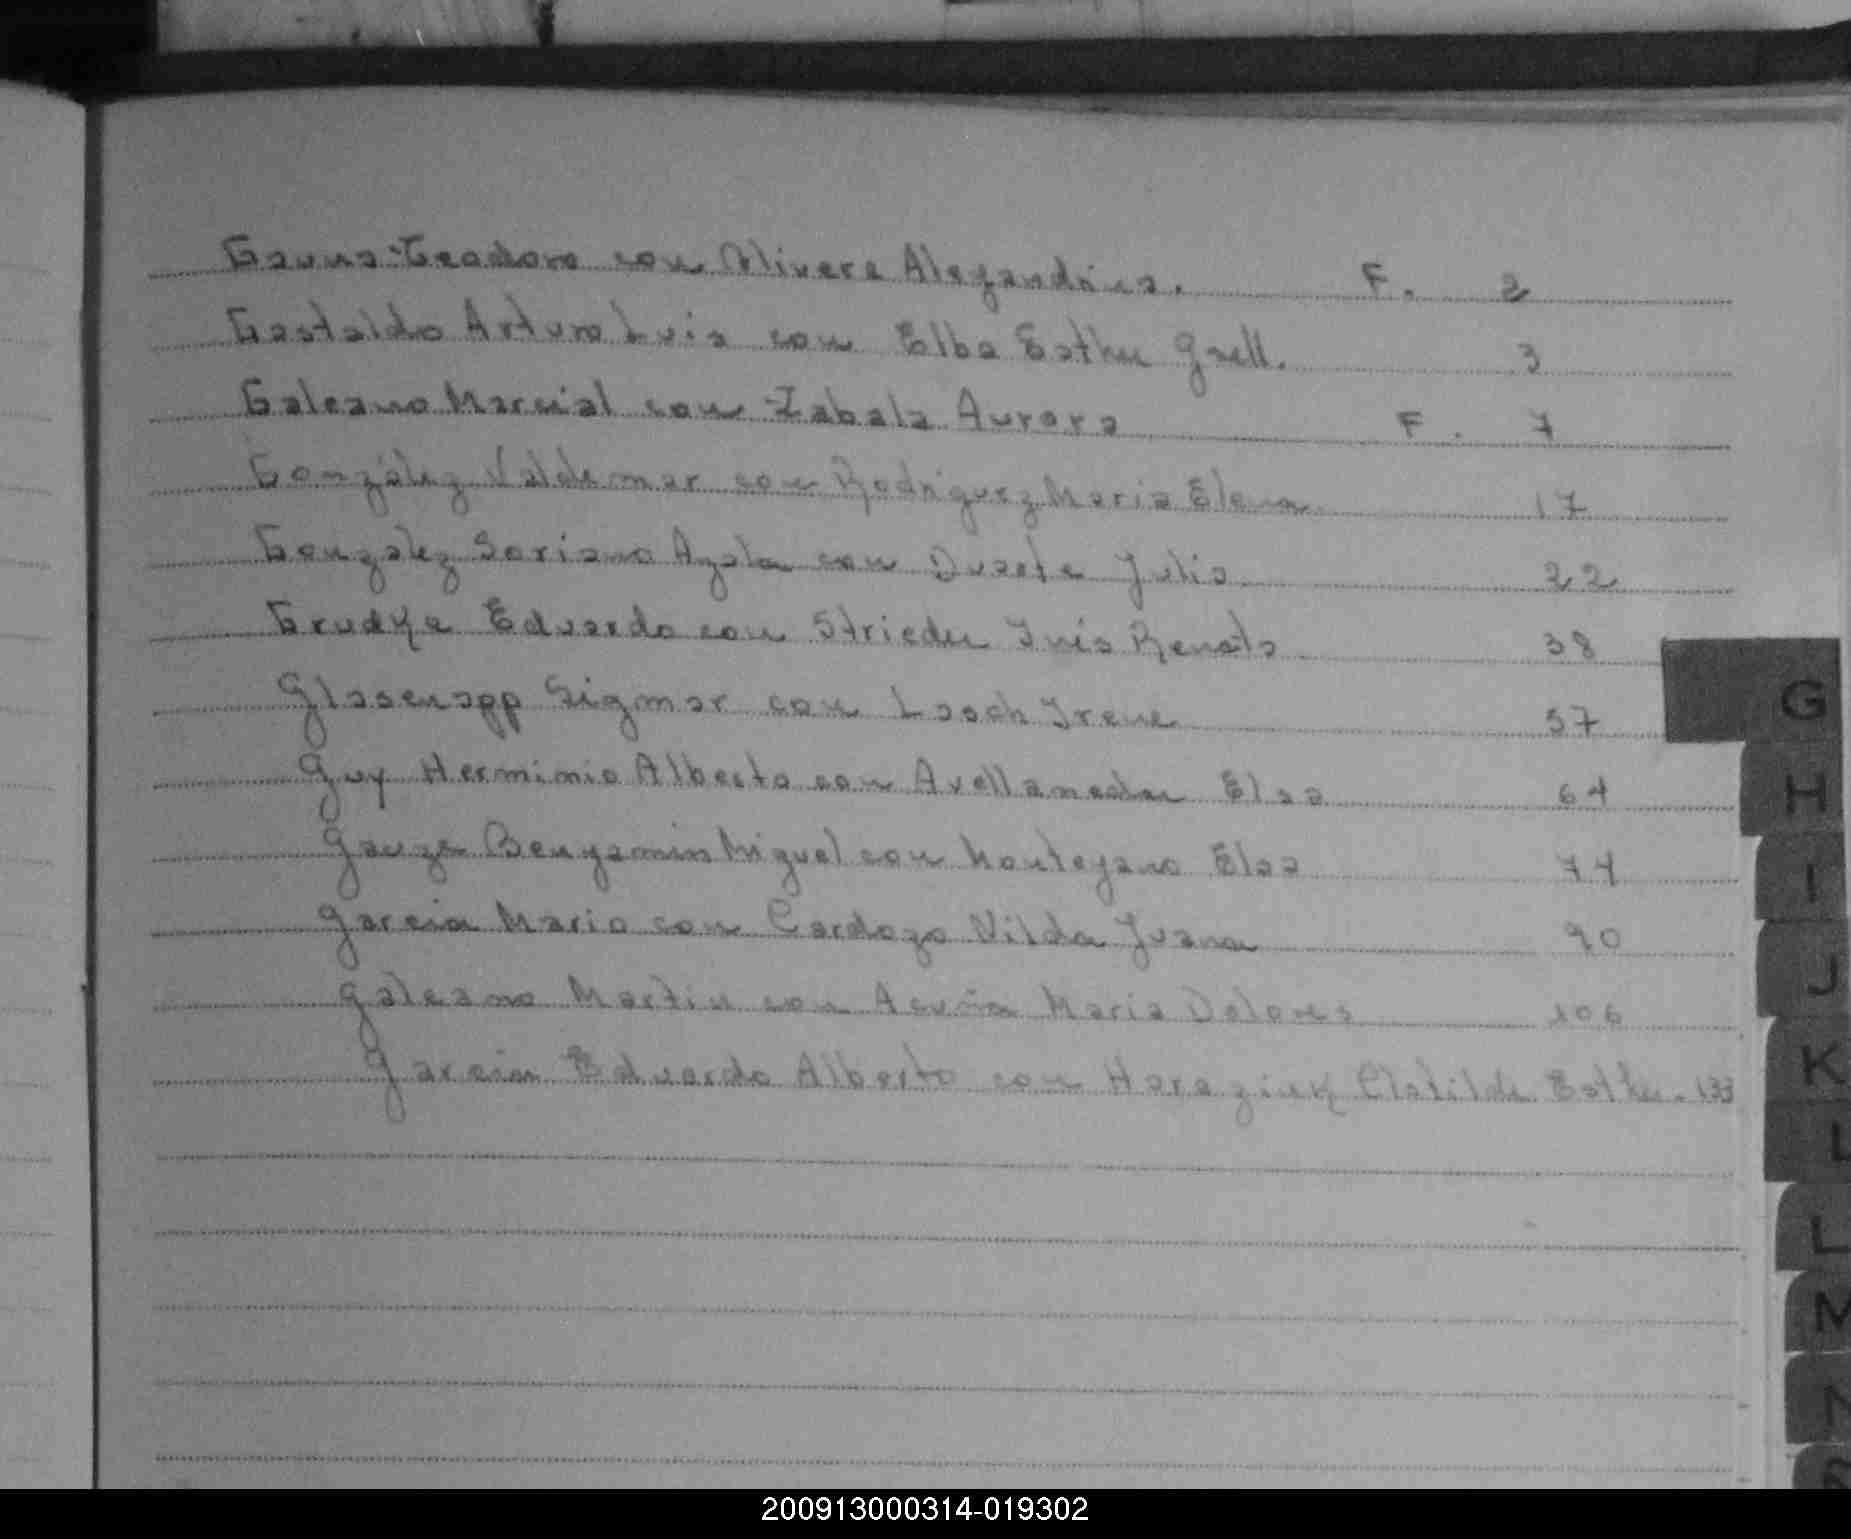 Gauna Teodoro con Olivera Alejandrina. F. 2
Gastaldo Arturo Luis con Elba Esther Grell. 3
Galeano Marcial con Zabala Aurora F. 7
González Valdemar con Rodriguez Maria Elena 17
Gonzalez Soriano Ayala con Duarte Julia 22
Grudke Eduardo con Strieder Inés Renata 38
Glasenapp Sigmar con Lasch Irene 57
Guy Herminio Alberto con Avellaneda Elsa 64
Gauze Benjamin Miguel con Montejano Elsa 74
Garcia Mario con Cardozo Nilda Juana 90
Galeano Martin con Acuña Maria Dolores 106
Garcia Eduardo Alberto con Clotilde Esther. 133
G
H
I
J
K
L
L
M
N
200913000314-019302